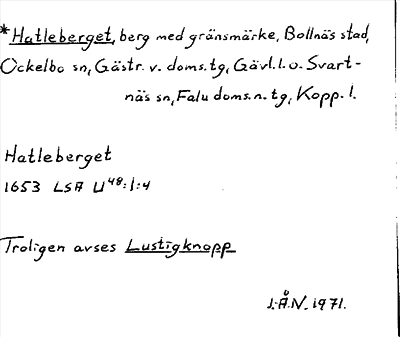 *Hatleberget, berg med gränsmärke, Bollnäs stad,
Ockelbo sn, Gästr. v. doms.tg, Gävl.l. o. Svart-
näs sn, Falu doms.n.tg, Kopp. l.
Hatleberget
1653 LSA U48:1:4
Troligen avses Lustigknopp
J.Å.N. 1971.